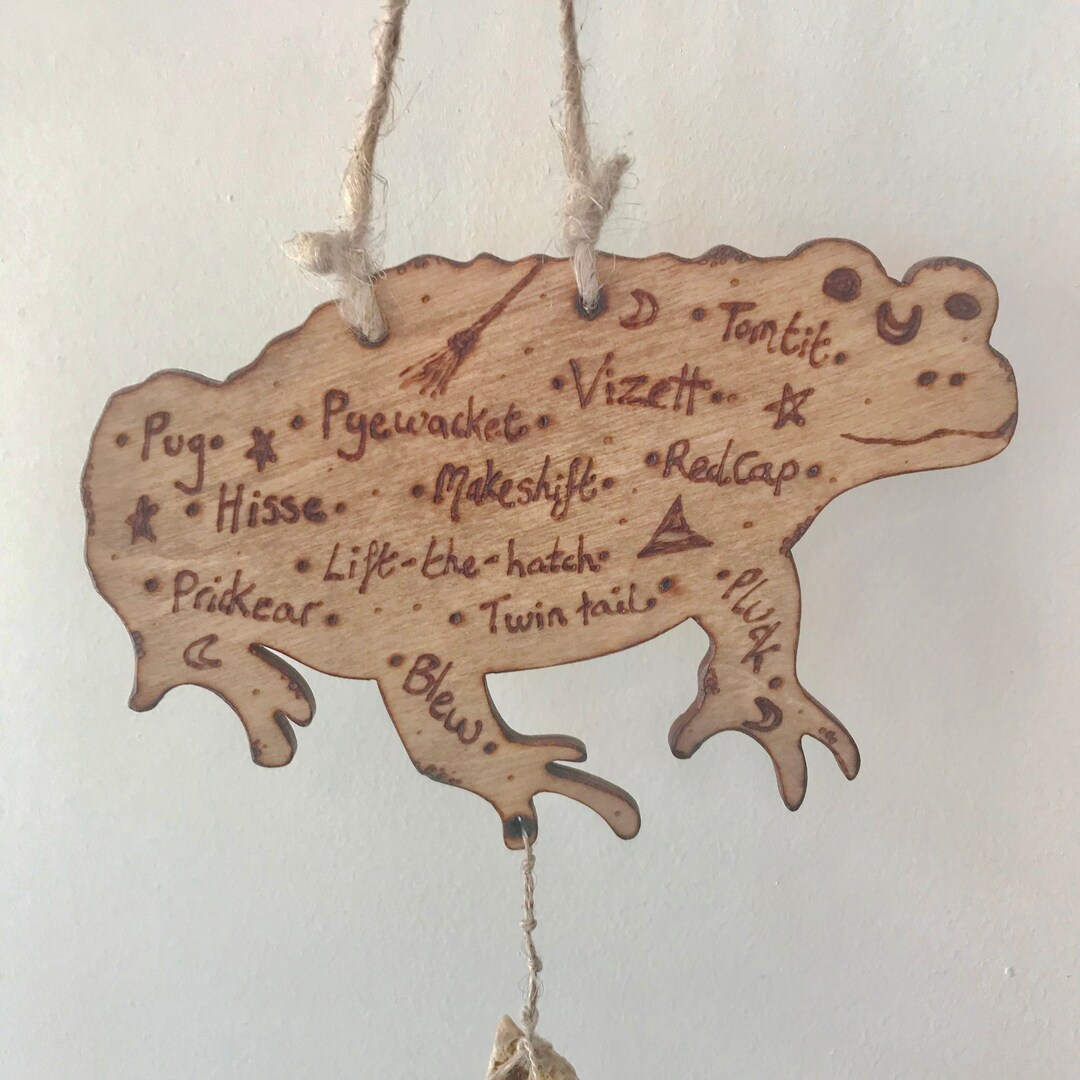 Tomtit
Vizett
Pyewacket
Pug
RedCap
Makeshift
Hisse
Lift-the-hatch
Prickear
Twin tail
Pluck
Blew